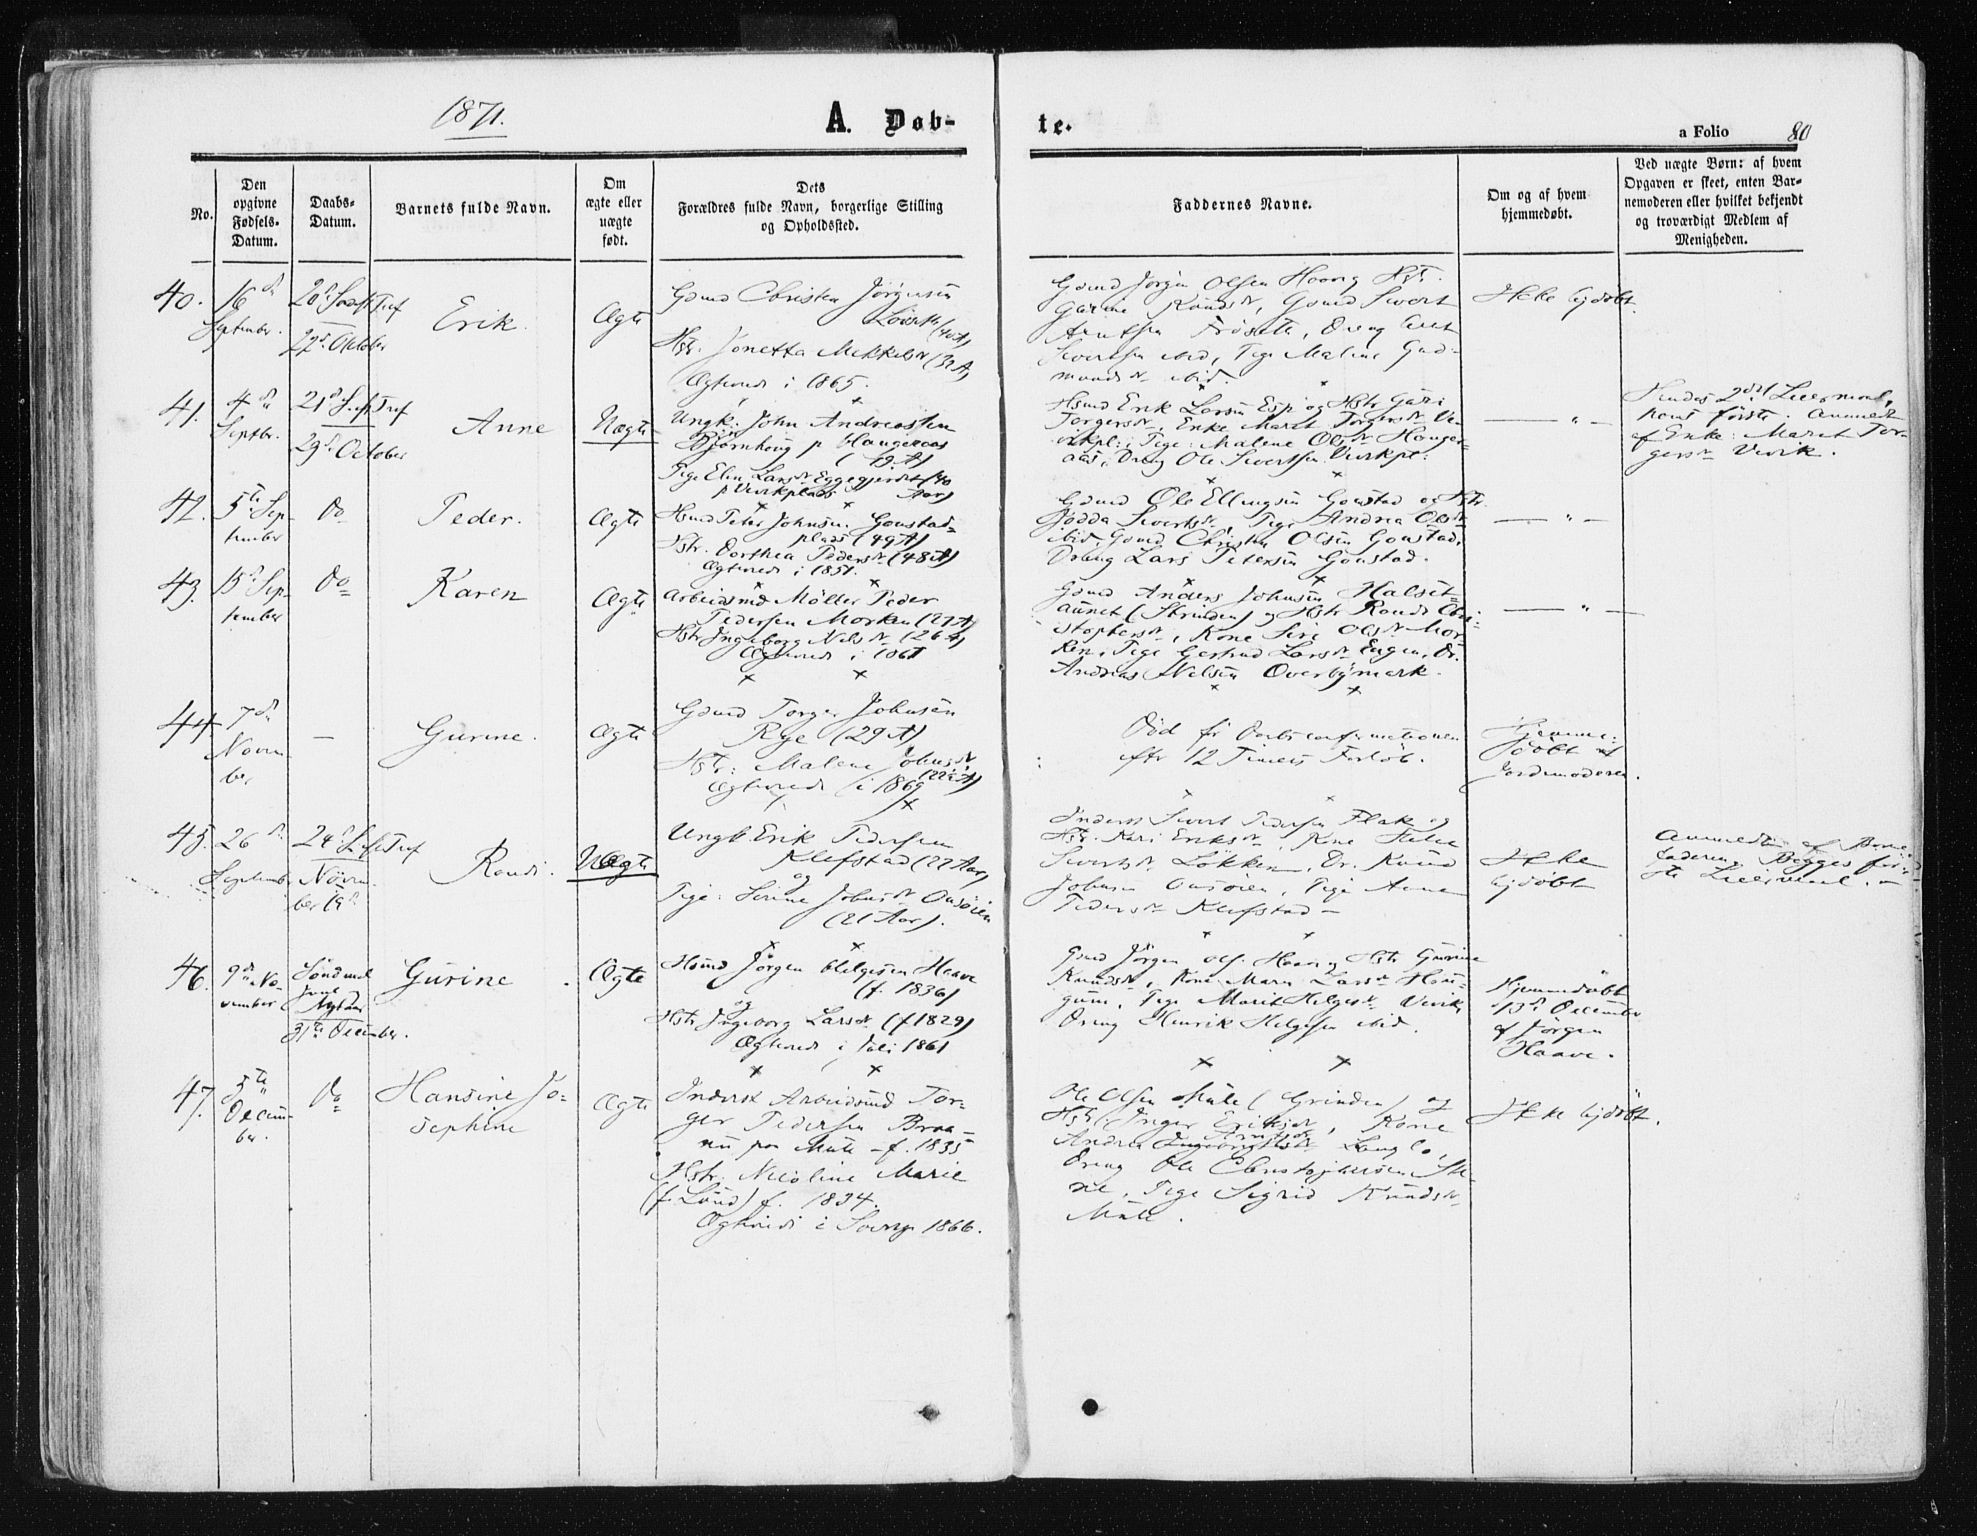 1871.
A. Døb-
te.
a Folio 80
No.
Den
opgivne
Fødsels-
Datum.
Daabs-
Datum.
Barnets fulde Navn.
Om
ægte eller
uægte
født.
Dets
Forældres fulde Navn, borgerlige Stilling
og Opholdssted.
Faddernes Navne.
Om og af hvem
hjemmedøbt.
Ved uægte Børn: af hvem
Opgaven er skeet, enten Bar-
nemoderen eller hvilket bekjendt
og troværdigt Medlem af
Menigheden.
40.
16
September.
22 October
Erik.
Ægte
Gmd Christen Jörgensen
Hstr. Jonetta Mikkelsdr (32 A)
Ægteviede i 1865.
Gmd Jörgen Olsen Haavg Hstr.
Gurine Knudsdr, Gmd Sivert
Arntsen Fröseth, Dreng
Sivertsen ibid, Tige Maline Gud-
mundsdr ibid.
Ikke hjdöbt.
41.
4de
Septbr.
29de October
Anne
Uægte
Ungk. John Andreassen
Björnhoug p Haugeraas
(49 A)
Tige Elen Larsdr Eggegjerdet (40
p Uvikplads Aar)
Hsmd Erik Larsen Esp og Hstr Guri
Torgersdr, Enke Marit Torgersdr
Tige: Malene Olsdr Hauger-
aas, Dreng Ole Sivertsen
— " —
Hendes 2det Leiermaal,
hans förste. Anmeldt
af Enke: Marit Tor-
gersdr Uvik.
42.
5te Sep-
tember
Do
Peder.
Ægte
Hsmd Peter Johnsen Gonstad-
plads (49 A)
Hstr. Dorthea Pedersdr (48 A)
Ægteviede i 1851.
Gmd Ole Ellingsen Gonstad og Hstr.
Jödda Sivertsdr, Tige Andrea Olsdr
ibid, Gmd Christen Olsen Gonstad,
Dreng Lars Petersen Gonstad.
— " —
43.
15de Sep-
tember
Do
Karen
Ægte
Arbeidsmd Möller Peder
Pedersen Morken (27 A)
Hstr Ingeborg Nilsdr (26 A)
Gmd Anders Johnsen Halset-
aunet (Strinden) og Hstr Randi Chri-
stophersdr, Kone Siri Olsdr Mor-
ken, Tige Gertrud Larsdr Eugen, Dr.
Andreas Nilsen Overbymark.
— " —
44
7de
Novm-
ber
—
Gurine.
Ægte
Gmd Torger Johnsen
Rye (29 A)
Hstr: Malene Johnsdr
(22 A)
Ægteviede i 1869
Död för Daabsconfirmationen
efter 12 Timers Forlöb.
Hjemme-
döbt af
Jordemoderen.
45.
26de
Septemb.
Novm-
ber 19de
Randi.
Uægte
Ungk. Erik Pedersen
Klefstad (22 Aar)
og
Tige: Sirine Johnsdr Onsöien
(21 Aar).
Inderst Sivert Pedersen Flak og
Hstr. Kari Eriksdr, Kone
Sivertsdr Lökken, Dr. Knud
Johnsen Onsöien, Tige Anne
Pedersdr Klefstad —
Ikke
hjdöbt
Anmeldt af Barne-
faderen. Begges för-
ste Leiermaal. —
46.
9de No-
vember
Söndag
Jul
Nytaar
31te December.
Gurine
Ægte
Hsmd Jörgen Helgesen Haave
(f. 1836)
og
Hstr Ingeborg Larsdr (f 1829)
Ægteviede i Juli 1861
Gmd Jörgen Ols. Haave Hstr Gurine
Knudsdr, Kone Maren Larsdr
Tige Marit Helgesdr Uvik
Dreng Henrik Helgesen ibid.
Hjemmedöbt
13de December
af Jörgen
Haave.
47.
5te
Decem-
ber.
Do
Hansine Jo-
sephine
Ægte
Inderst Arbeidsmd Tor-
ger Pedersen Braa-
en paa Mule f. 1835
Hstr. Nicoline Marie
(f. Lund) f. 1834.
Ægteviede i 1866.
Ole Olsen Mule (Grinden) og
Hstr Inger Eriksdr, Kone
Andrea Arntsdr Langlo,
Dreng Ole Christophersen
Tige Sigrid Knudsdr
Mule.
Ikke hjdöbt.